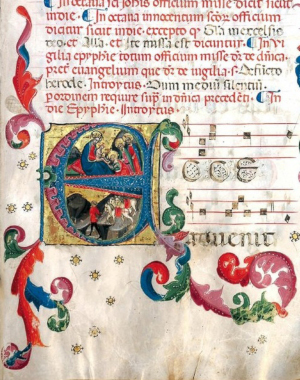 In octava s̄ Joh̄is officium misse dicit̄ sicut
indie. In octava innocentum sc̄oꝝ officium
dicatur sicut indie. excepto q̄ Gl̄a inexcelsis
deo. et Alla. et Ite missa est dicuntur. In vi
gilia epyphie totum officium misse d̄r de dn̄ica.
preter evangelium que d̄r de vigilia. s. Defūcto
herode. Introytus. Dum mediū silentiū.
ꝑ ordinem require sup̄ in dn̄ica precedēti. In
die Epyphie. Introytus.
E
cce
advenit